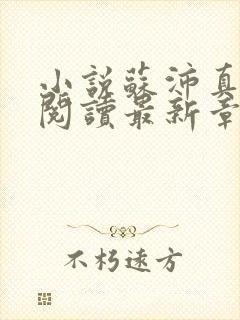 小說蘇沛真
閱讀最新章
不朽遠方